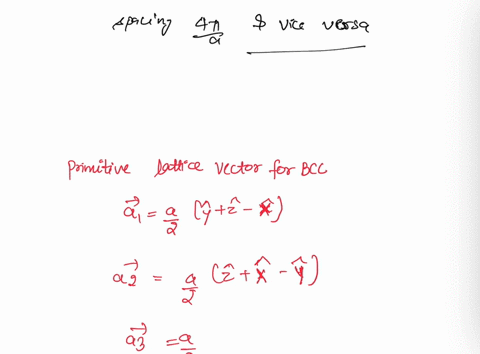 spacing 4π/a & vice versa
Primitive lattice vector for BCC
a⃗1 = a/2 (ŷ+ẑ-x̂)
a⃗2 = a/2 (ẑ+x̂-ŷ)
a⃗3 = a/2